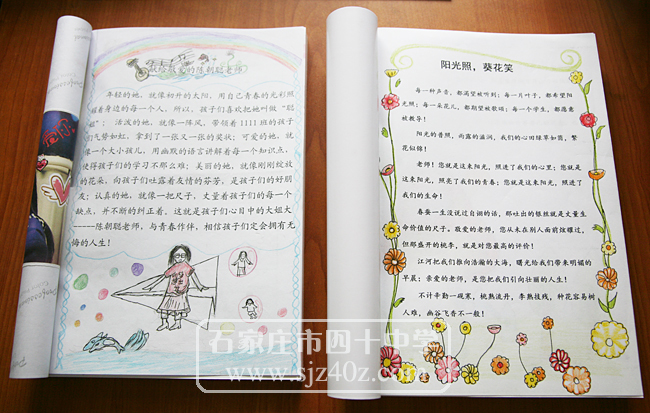 献给敬爱的陈朝聪老师
年轻的她，就像初升的太阳，用自己青春的光彩照
耀着身边的每一个人，所以，孩子们喜欢把她叫做“聪
聪”；活泼的她，就像一阵风，带领着1111班的孩子
们气势如虹，拿到了一张又一张的奖状；可爱的她，就
像一个大小孩儿，用幽默的语言讲解着每一个知识点，
使得孩子们的学习不那么难；美丽的她，就像刚刚绽放
的花朵，向孩子们吐露着友情的芬芳，是孩子们的好朋
友；认真的她，就像一把尺子，丈量着孩子们的每一个
缺点，并不断的纠正着，这就是孩子们心目中的大姐大
-----陈朝聪老师，与青春作伴，相信孩子们定会拥有无
悔的人生！
阳光照，葵花笑
每一种声音，都渴望被听到；每一片叶子，都希望阳
光照；每一朵花儿，都期望被歌唱；每一个学生，都愿意
被教导！
阳光的普照，雨露的滋润，我们的心田绿草如茵，繁
花似锦！
老师！您就是这束阳光，照进了我们的心里；您就是
这束阳光，照亮了我们的青春；您就是这束阳光，照进了
我们的生命！
春蚕一生没说过自诩的话，那吐出的银丝就是丈量生
命价值的尺子。敬爱的老师，您从未在别人面前炫耀过，
但那盛开的桃李，就是对您最高的评价！
江河把我们推向浩瀚的大海，曙光给我们带来明媚的
早晨；亲爱的老师，是您把我们引向壮丽的人生！
不计辛勤一砚寒，桃熟流丹，李熟枝残，种花容易树
人难，幽谷飞香不一般！
石家庄市四十中学
www.sjz40z.com